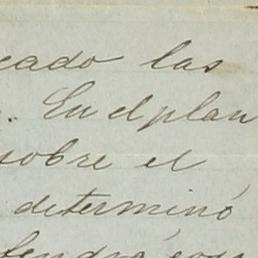 cado las
. En el plan
sobre el
determinó